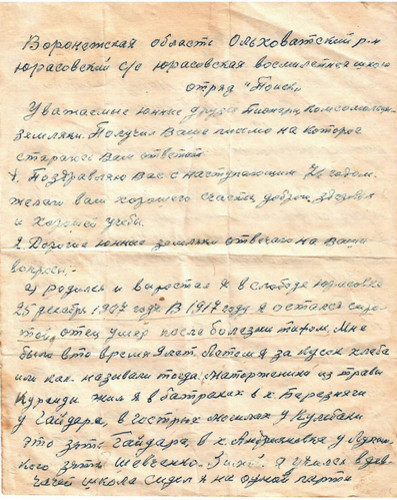 Воронежская область Ольховатский р-н
Юрасовский с/с Юрасовская восмилетняя школа
отряд "Поиск"
Уважаемые юнные друзья Пионеры, комсомольцы
земляки. Получил Ваше письмо на которое
стараюсь Вам ответить
1. Поздравляю Вас с наступающим 76 годом.
желаю вам хорошего счастья, доброго здоровья
и хорошей учебы.
2. Дорогие юнные земляки отвечаю на Ваши
вопросы:-
а) родился и выростал я в слободе Юрасовке
25 декабря 1907 года. В 1917 году я остался сиро-
той, отец умер после болезни тифом. Мне
было в то время 9 лет. Потом я за кусок хлеба
или как называли тогда Маторженики из травы
Куранди жил я в батраках в х. Березняги
у Гайдара, в гострых могилах у Кулбаки
это зять Гайдара, в х. Андриановка у
кого зять Шевченко. Зимой я учился в дев-
чачей школа сидел я на одной парти